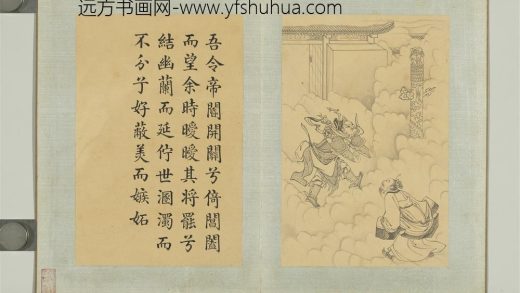 远方书画网-www.yfshuhua.com
吾令帝閽開關兮倚閶闔
而望余時曖曖其将罷兮
結幽蘭而延佇世溷濁而
不分兮好蔽美而嫉妬